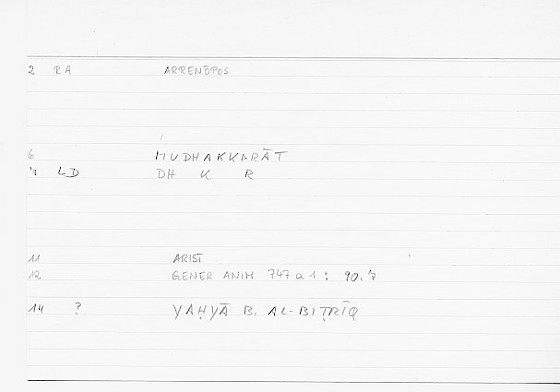 2 RA ARRENŌPOS
6 MUDHAKKARĀT
7 LD DH K R
11 ARIST
12 GENER ANIM 747 a 1 : 90.7
14 ? YAḤYĀ B. AL-BIṬRĪQ